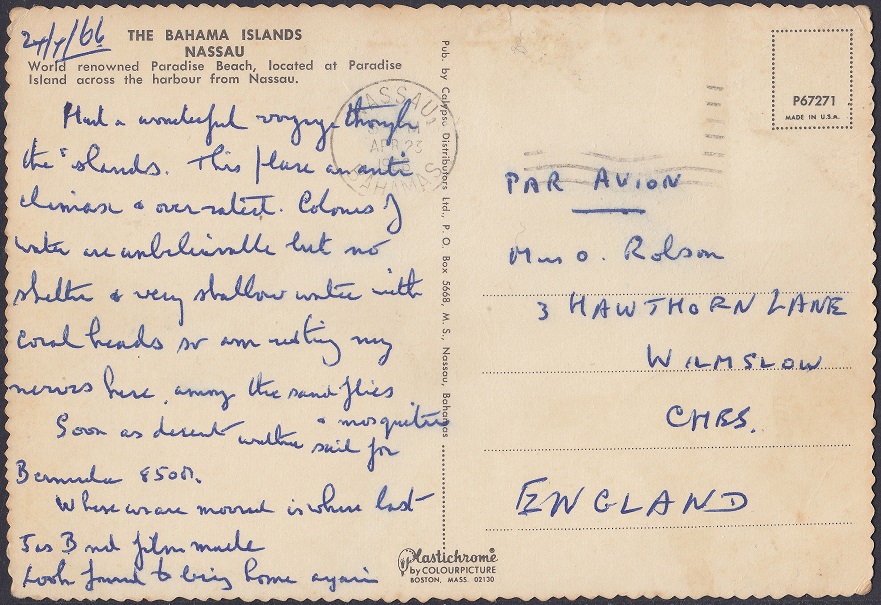 24/4/66
THE BAHAMA ISLANDS
NASSAU
World renowned Paradise Beach, located at Paradise
Island across the harbour from Nassau.
Had a wonderful voyage through
the islands. This place an anti
climax & over-rated. Colours of
water are unbelievable but no
shelter & very shallow water with
coral heads so am resting my
nerves here, among the sand flies
& mosquitoes
Soon as decent weather sail for
Bermuda 850m.
Where we are moored is where last
Jas Bond film made
Look forward to being home again
NASSAU
APR 23
BAHAMAS
Pub. by Calypso Distributors Ltd., P. O. Box 5668, M. S., Nassau, Bahamas
Plastichrome
by COLOURPICTURE
BOSTON, MASS. 02130
P67271
MADE IN U.S.A.
PAR AVION
O. Robson
3 HAWTHORN LANE
WILMSLOW
CHES.
ENGLAND